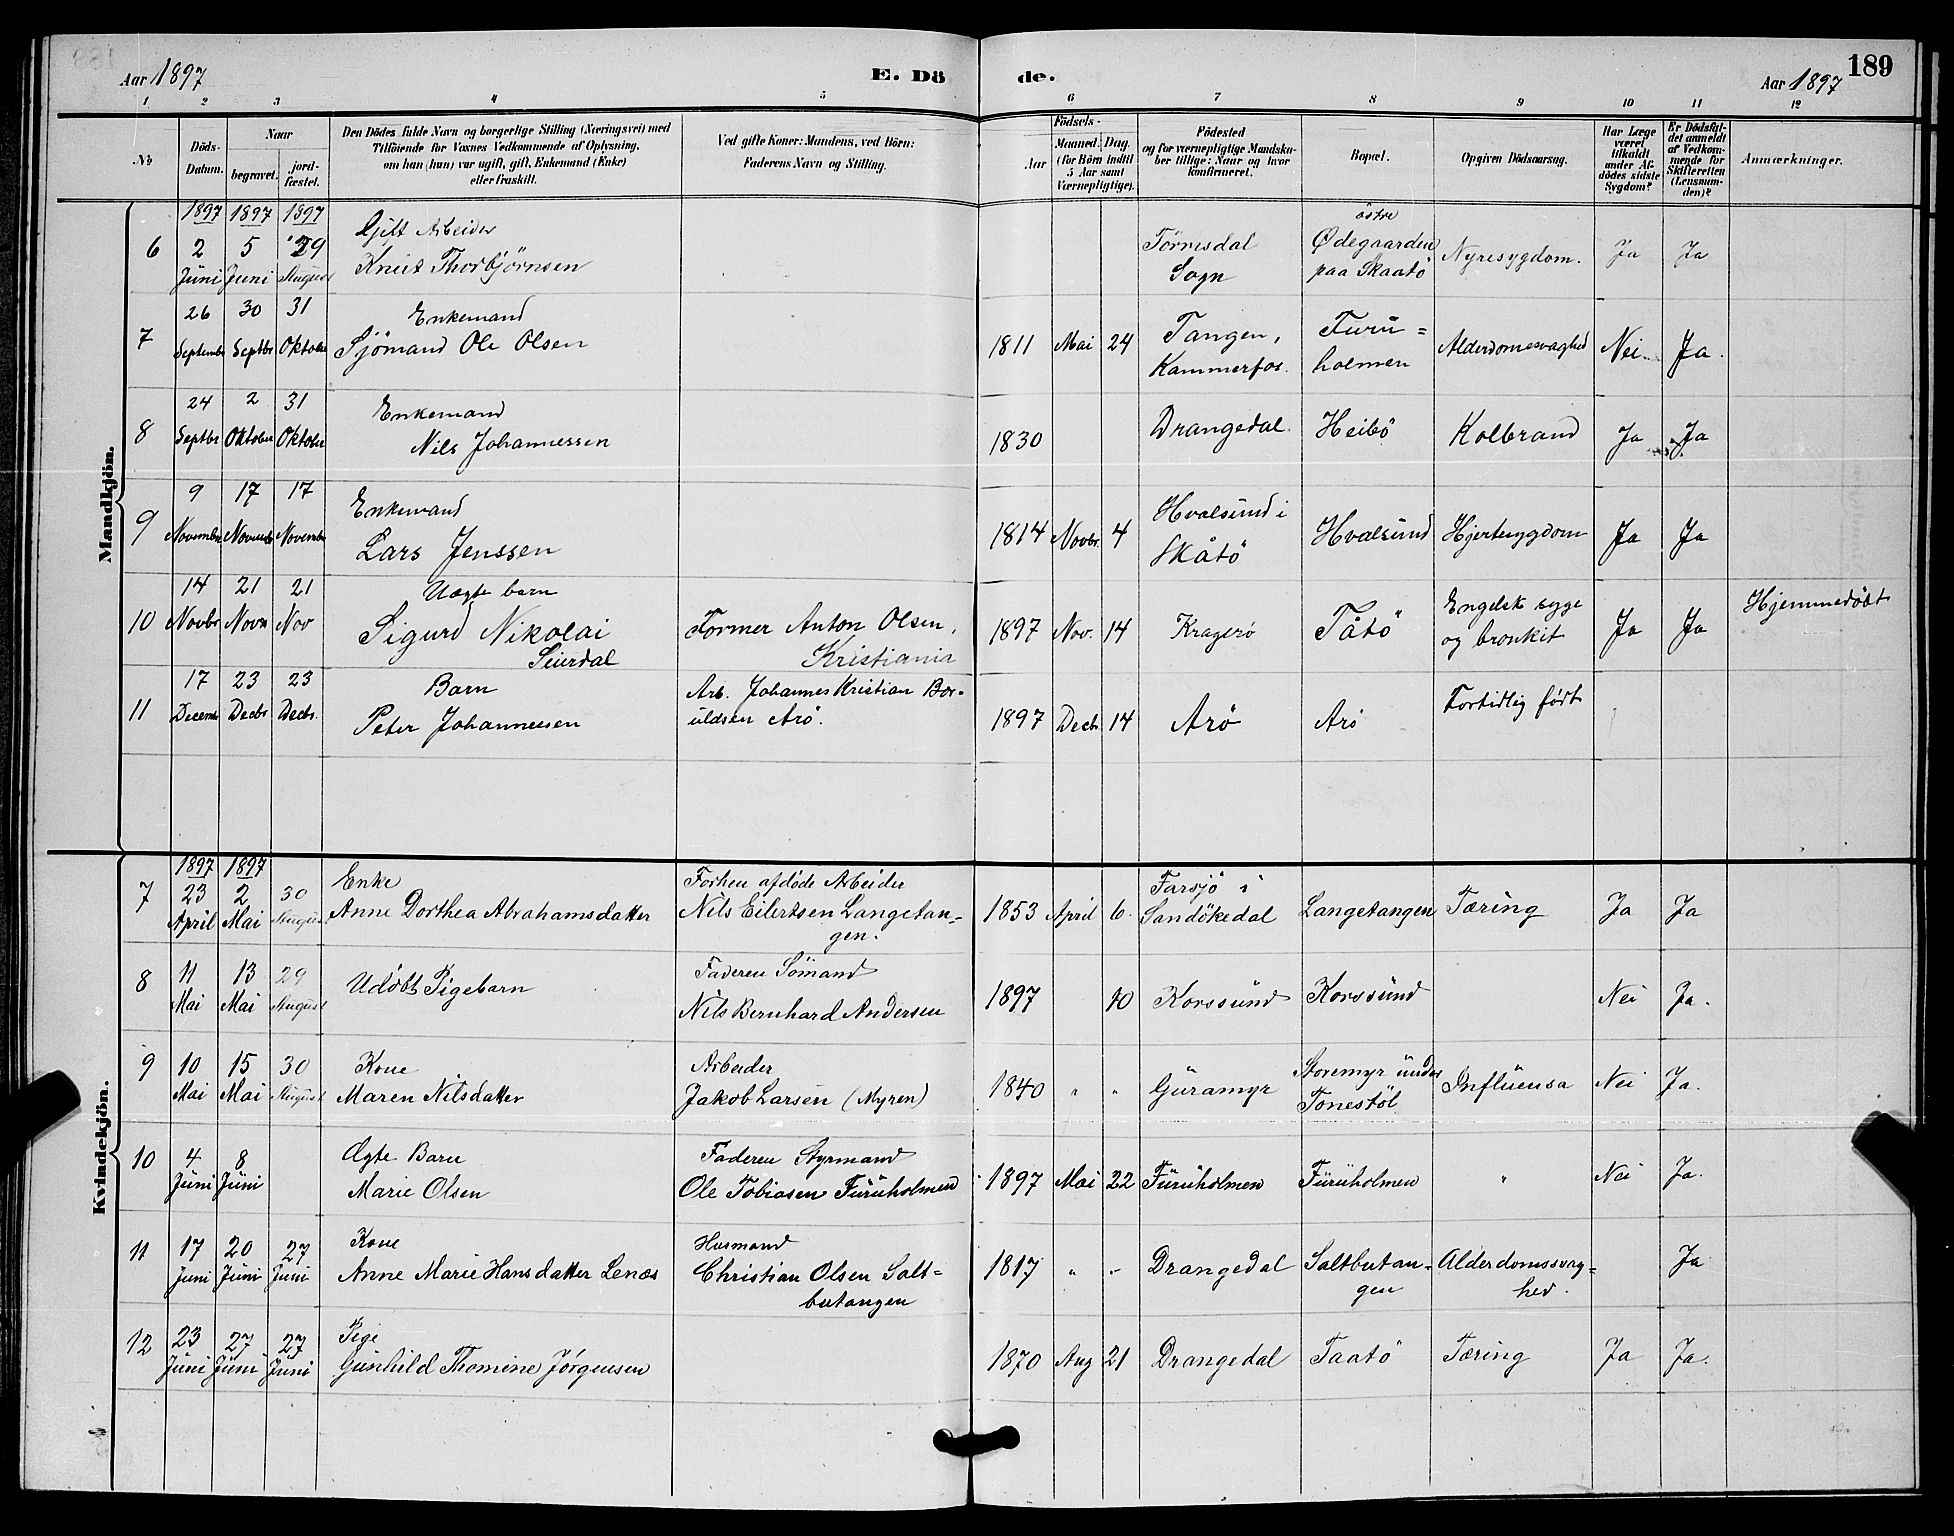 Aar 1897
E. Dö
de.
Aar 1897
189
1 2 3 4 5 6 7 8 9 10 11 12
No
Döds-
Datum.
Naar
begravet.
jord-
fæstet.
Den Dödes fulde Navn og borgerlige Stilling (Næringsvei) med
Tilföiende for Voxnes Vedkommende af Oplysning,
om han (hun) var ugift, gift, Enkemand (Enke)
eller fraskilt.
Ved gifte Koner: Mandens, ved Börn:
Faderens Navn og Stilling.
Födsels-
Aar
Maaned. Dag.
(for Börn indtil
5 Aar samt
Værnepligtige).
Födested
og for værnepligtige Mandska-
ber tillige: Naar og hvor
konfirmeret.
Bopæl.
Opgiven Dödsaarsag.
Har Læge
været
tilkaldt
under Af-
dödes sidste
Sygdom?
Er Dödsfal-
det anmeldt
af Vedkom-
mende for
Skifteretten
(Lensman-
den)?
Anmærkninger.
Mandkjön.
1897 1897 1897
6 2 Juni 5 Juni 29 August Gift Arbeider
Knut Thorbjörnsen
Törrisdal
Sogn
östre
Ødegaarden
paa Skaatö
Nyresygdom. Ja Ja
7 26 September 30 Septbr 31 Oktober Enkemand
Sjömand Ole Olsen
1811 Mai 24 Tangen,
Kammerfos.
Furu=
holmen
Alderdomssvaghed Nei. Ja.
8 24 Septbr 2 Oktober 31 Oktober Enkemand
Nils Johannessen
1830 Drangedal. Heibö Kolbrand Ja Ja
9 9 November 17 November 17 November Enkemand
Lars Jenssen
1814 Novbr. 4 Hvalsund i
Skåtö
Hvalsund Hjertesygdom Ja Ja
10 14 Novbr 21 Novbr 21 Nov Uægte barn
Sigurd Nikolai
Seierdal
Former Anton Olsen,
Kristiania
1897 Nov. 14 Kragerö Tåtö Engelsk syge
og bronkit
Ja Ja Hjemmedöbt
11 17 Decembr 23 Decbr 23 Decbr. Barn
Peter Johannessen
Arb. Johannes Kristian Bor-
uldsen Arö.
1897 Decbr 14 Arö Arö Fortidlig födt
Kvindekjön.
1897 1897
7 23 April 2 Mai 30 August Enke
Anne Dorthea Abrahamsdatter
Forhen afdöde Arbeider
Nils Eilertsen Langetan-
gen.
1853 April 6. Farsjö i
Sandökedal
Langetangen Tæring Ja Ja
8 11 Mai 13 Mai 29 August Udöbt Pigebarn
Faderen Sömand
Nils Bernhard Andersen
1897 10 Korssund Korssund Nei Ja.
9 10 Mai 15 Mai 30 August Kone
Maren Nilsdatter
Arbeider
Jakob Larsen (Myren)
1840 " " Guramyr Storemyr under
Tonestöl
Influensa Nei Ja.
10 4 Juni 8 Juni Ægte Barn
Marie Olsen
Faderen Styrmand
Ole Tobiasen Furuholmen
1897 Mai 22 Furuholmen Furuholmen " Nei Ja.
11 17 Juni 20 Juni 27 Juni Kone
Anne Marie Hansdatter Lenæs
Husmand
Christian Olsen Salt=
butangen
1817 " " Drangedal Saltbutan-
gen
Alderdomssvag=
hed.
Ja
12 23 Juni 27 Juni 27 Juni Pige
Gunhild Thomine Jörgensen
1870 Aug 21 Drangedal Taatö Tæring Ja Ja.